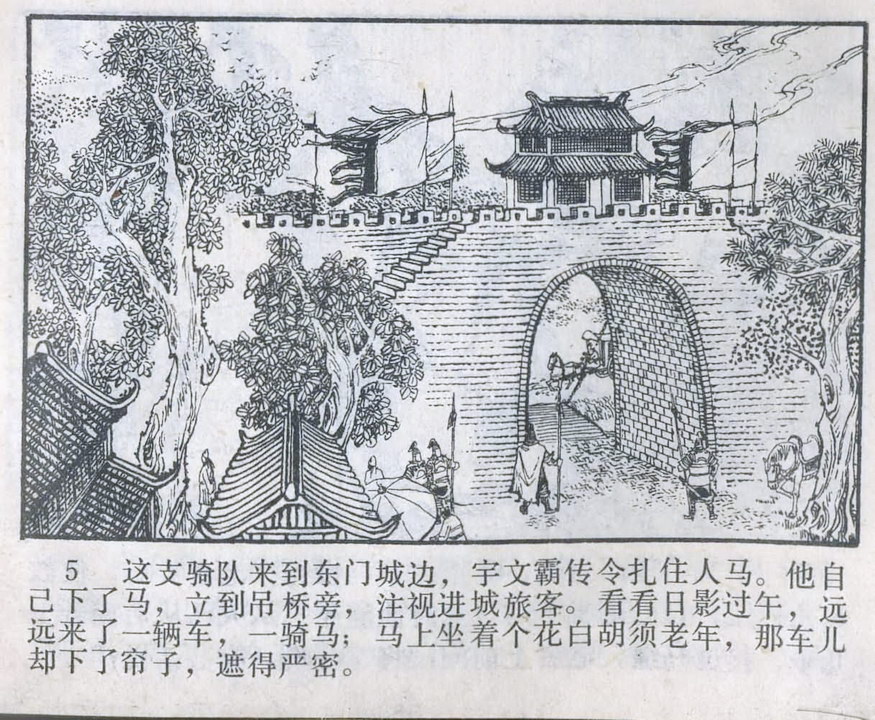 5 这支骑队来到东门城边，宇文霸传令扎住人马。他自
己下了马，立到吊桥旁，注视进城旅客。看看日影过午，远
远来了一辆车，一骑马；马上坐着个花白胡须老年，那车儿
却下了帘子，遮得严密。